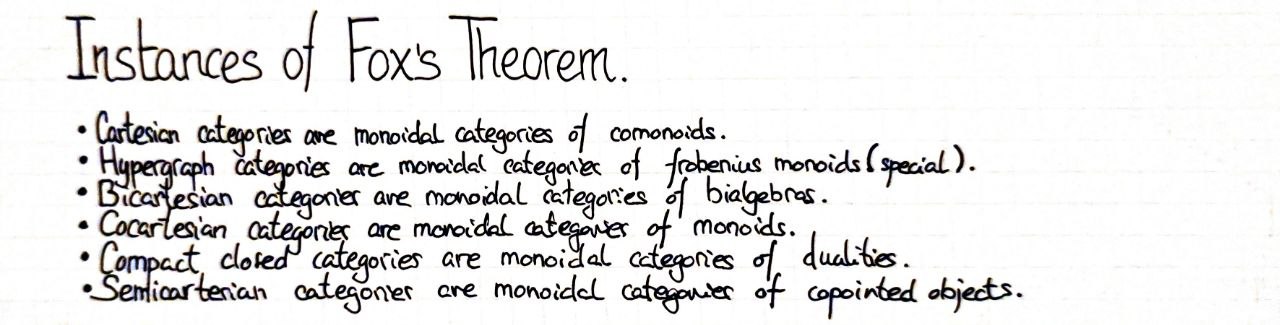 Instances of Fox's Theorem.
• Cartesian categories are monoidal categories of comonoids.
• Hypergraph categories are monoidal categories of frobenius monoids (special).
• Bicartesian categories are monoidal categories of bialgebras.
• Cocartesian categories are monoidal categories of monoids.
• Compact closed categories are monoidal categories of dualities.
• Semicartesian categories are monoidal categories of copointed objects.